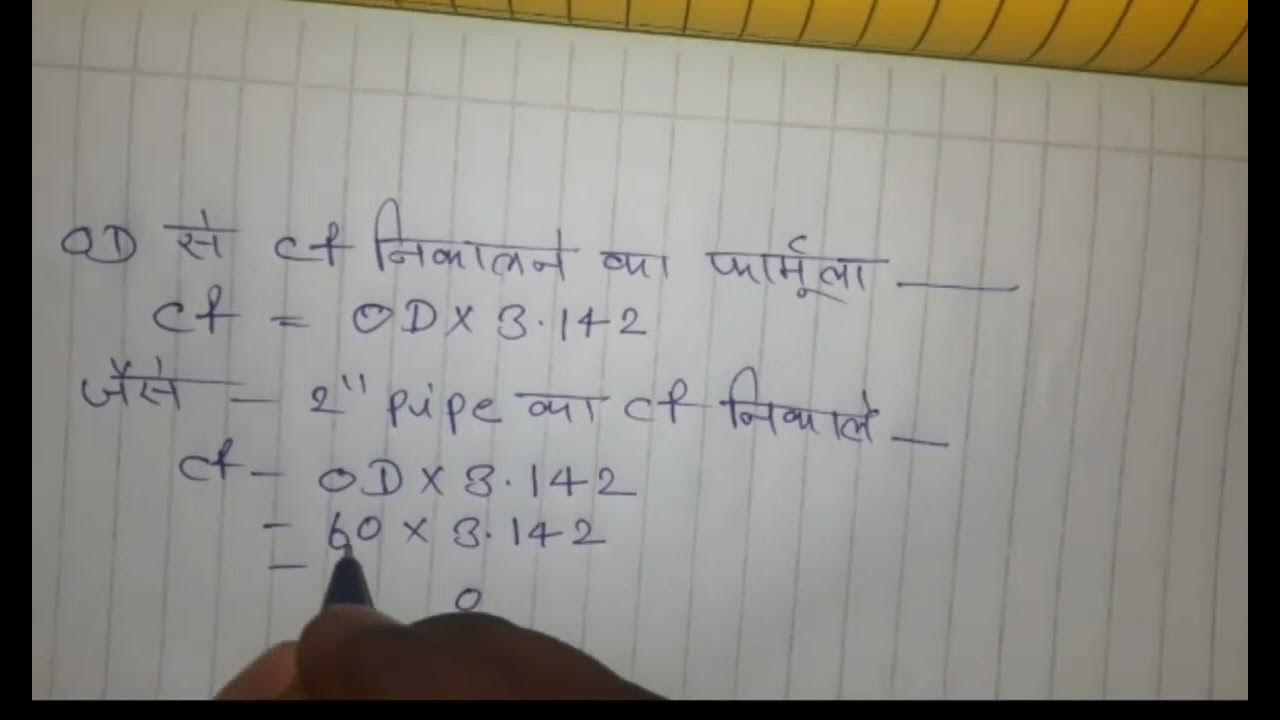 OD से cf निकालने का फार्मूला ——
cf = OD x 3.142
जैसे — 2" pipe का cf निकाले —
cf — OD x 3.142
— 60 x 3.142
— 0